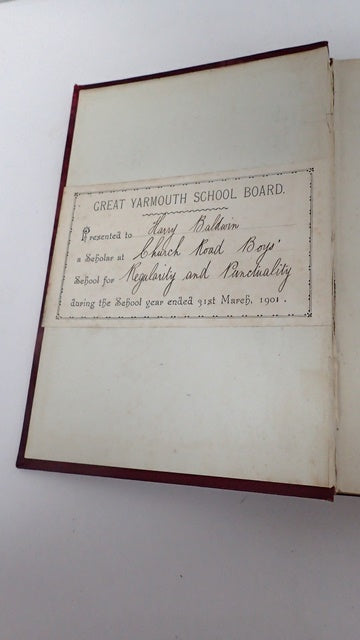 GREAT YARMOUTH SCHOOL BOARD.
Presented to Harry Baldwin
a Scholar at Church Road Boys'
School for Regularity and Punctuality
during the School year ended 31st March, 1901.